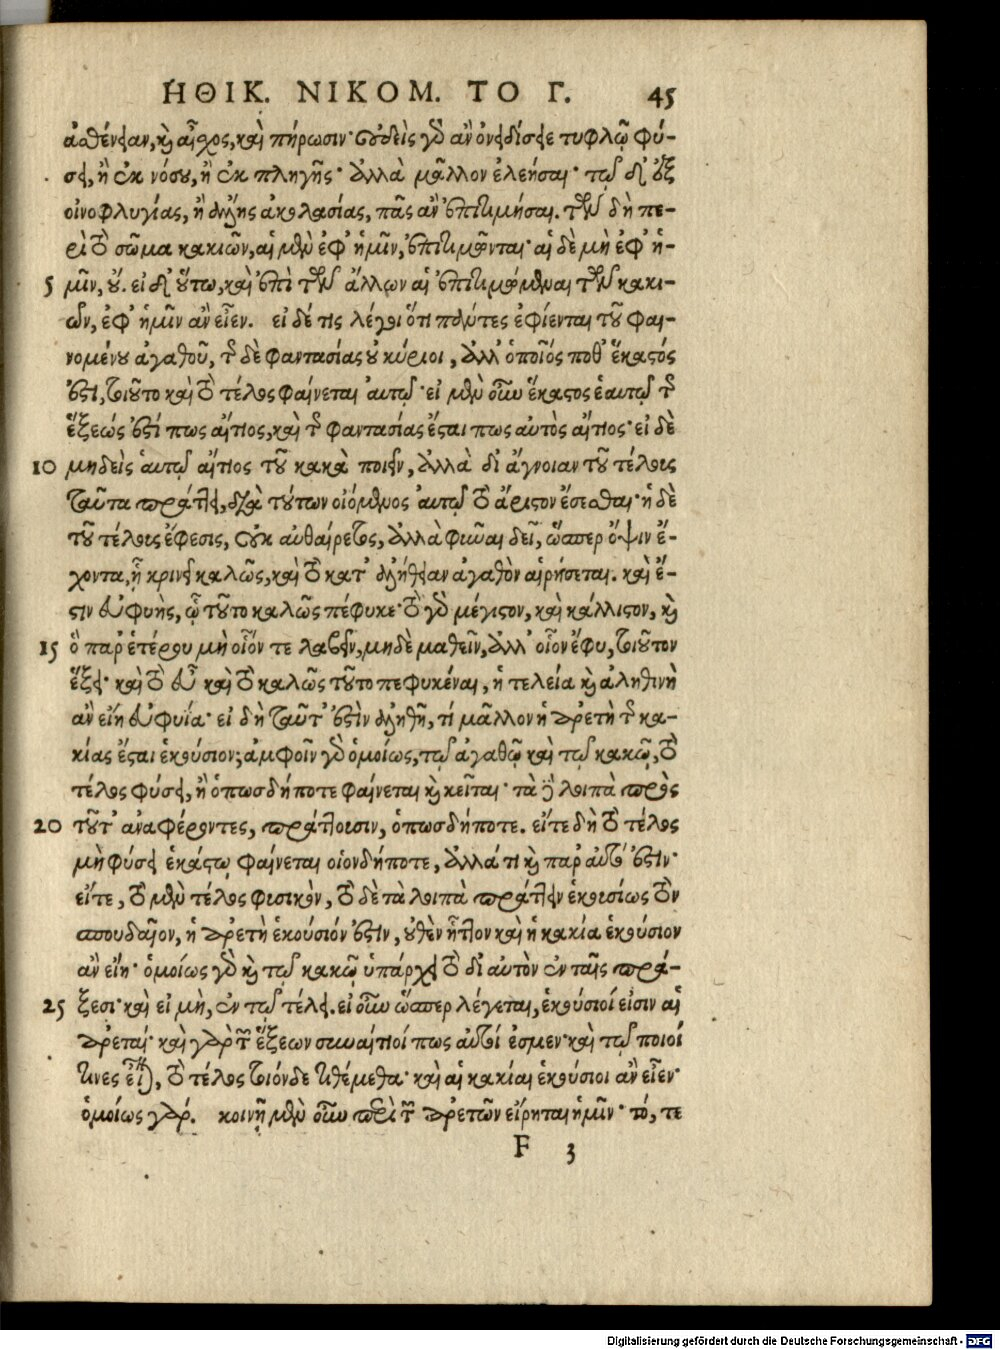 ΗΘΙΚ. ΝΙΚΟΜ. ΤΟ Γ. 45
ἀσθένειαν, καὶ αἶσχος, καὶ πήρωσιν· οὐδεὶς γὰρ ἂν ὀνειδίσειε τυφλῷ φύ-
σει, ἢ ἐκ νόσου, ἢ ἐκ πληγῆς· ἀλλὰ μᾶλλον ἐλεήσαι· τῷ δ' ἐξ
οἰνοφλυγίας, ἢ ἄλλης ἀκολασίας, πᾶς ἂν ἐπιτιμήσαι. τῶν δὴ πε-
ρὶ τὸ σῶμα κακιῶν, αἱ μὲν ἐφ' ἡμῖν, ἐπιτιμῶνται· αἱ δὲ μὴ ἐφ' ἡ-
5 μῖν, οὔ. εἰ δ' οὕτω, καὶ ἐπὶ τῶν ἄλλων αἱ ἐπιτιμώμεναι τῶν κακι-
ῶν, ἐφ' ἡμῖν ἂν εἶεν. εἰ δέ τις λέγοι ὅτι πάντες ἐφίενται τοῦ φαι-
νομένου ἀγαθοῦ, τῆς δὲ φαντασίας οὐ κύριοι, ἀλλ' ὁποῖός ποθ' ἕκαστός
ἐστι, τοιοῦτο καὶ τὸ τέλος φαίνεται αὐτῷ· εἰ μὲν οὖν ἕκαστος ἑαυτῷ τῆς
ἕξεώς ἐστί πως αἴτιος, καὶ τῆς φαντασίας ἔσται πως αὐτὸς αἴτιος· εἰ δὲ
10 μηδεὶς αὑτῷ αἴτιος τοῦ κακὰ ποιεῖν, ἀλλὰ δι' ἄγνοιαν τοῦ τέλους
ταῦτα πράττει, διὰ τούτων οἰόμενος αὑτῷ τὸ ἄριστον ἔσεσθαι· ἡ δὲ
τοῦ τέλους ἔφεσις, οὐκ αὐθαίρετος, ἀλλὰ φῦναι δεῖ, ὥσπερ ὄψιν ἔ-
χοντα, ᾗ κρινεῖ καλῶς, καὶ τὸ κατ' ἀλήθειαν ἀγαθὸν αἱρήσεται. καὶ ἔ-
στιν εὐφυὴς, ᾧ τοῦτο καλῶς πέφυκε· τὸ γὰρ μέγιστον, καὶ κάλλιστον, καὶ
15 ὃ παρ' ἑτέρου μὴ οἷόν τε λαβεῖν, μηδὲ μαθεῖν, ἀλλ' οἷον ἔφυ, τοιοῦτον
ἕξει· καὶ τὸ εὖ καὶ τὸ καλῶς τοῦτο πεφυκέναι, ἡ τελεία καὶ ἀληθινὴ
ἂν εἴη εὐφυΐα· εἰ δὴ ταῦτ' ἐστὶν ἀληθῆ, τί μᾶλλον ἡ ἀρετὴ τῆς κα-
κίας ἔσται ἑκούσιον; ἀμφοῖν γὰρ ὁμοίως, τῷ ἀγαθῷ καὶ τῷ κακῷ, τὸ
τέλος φύσει, ἢ ὁπωσδήποτε φαίνεται καὶ κεῖται· τὰ δὲ λοιπὰ πρὸς
20 τοῦτ' ἀναφέροντες, πράττουσιν, ὁπωσδήποτε. εἴτε δὴ τὸ τέλος
μὴ φύσει ἑκάστῳ φαίνεται οἱονδήποτε, ἀλλά τι καὶ παρ' αὐτό ἐστιν·
εἴτε, τὸ μὲν τέλος φισικὸν, τὸ δὲ τὰ λοιπὰ πράττειν ἑκουσίως τὸν
σπουδαῖον, ἡ ἀρετὴ ἑκούσιόν ἐστιν, οὐθὲν ἧττον καὶ ἡ κακία ἑκούσιον
ἂν εἴη· ὁμοίως γὰρ καὶ τῷ κακῷ ὑπάρχει τὸ δι' αὑτὸν ἐν ταῖς πρά-
25 ξεσι· καὶ εἰ μὴ, ἐν τῷ τέλει. εἰ οὖν ὥσπερ λέγεται, ἑκούσιοί εἰσιν αἱ
ἀρεταί· καὶ γὰρ τῶν ἕξεων συναίτιοί πως αὐτοί ἐσμεν· καὶ τῷ ποιοί
τινες εἶναι, τὸ τέλος τοιόνδε τιθέμεθα· καὶ αἱ κακίαι ἑκούσιοι ἂν εἶεν·
ὁμοίως γάρ. κοινῇ μὲν οὖν περὶ τῶν ἀρετῶν εἴρηται ἡμῖν· τό, τε
F 3
Digitalisierung gefördert durch die Deutsche Forschungsgemeinschaft - DFG